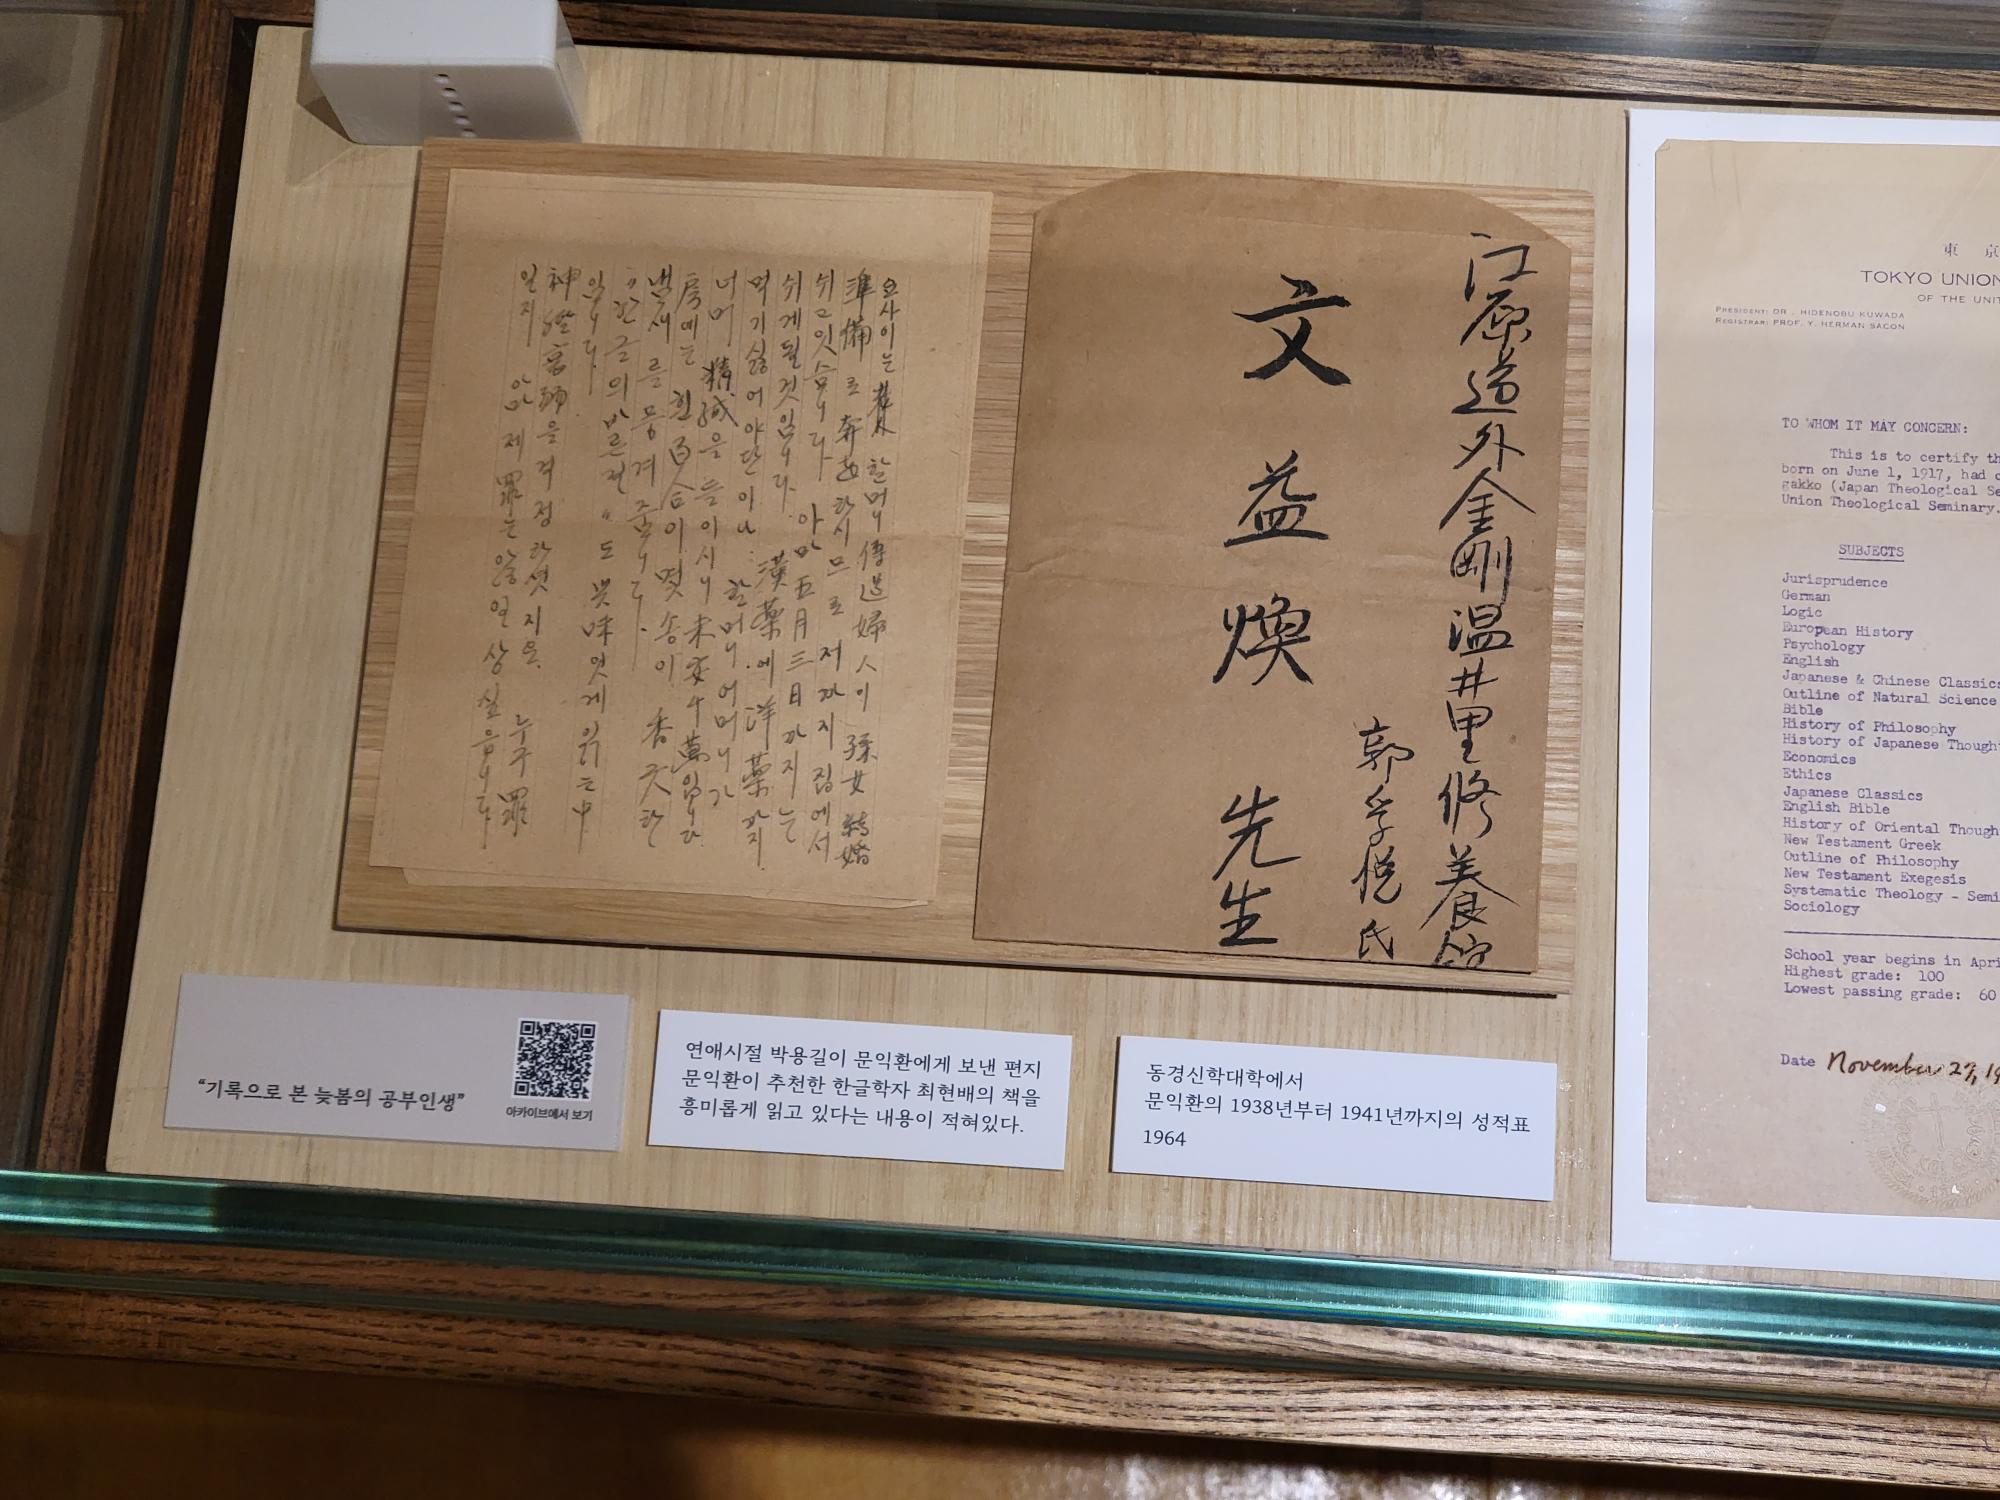 요사이는 農村 할머니 傳道婦人이 孫女 結婚
準備로 奔走하시므로 저까지 집에서
쉬고잇슴니다 아마 五月 三日까지는
쉬게될것임니다. 漢藥에 洋藥까지
먹기싫어 야단이나 할머니 어머니가
너머 精誠을 드리시니 未安千萬임니다.
房에는 흰 百合이 몇송이 香긋한
냄새를 풍겨줌니다.
"한글의 바른길"도 興味잇게 읽는中
임니다.
神經衰弱을 걱정하셧지요. 누구 罪
일지 아마 제 罪는 않일상 싶읍니다
江原道外金剛温井里修養館
郭孚悅氏
文益煥 先生
東京
TOKYO UNION
OF THE UNIT
PRESIDENT: DR. HIDENOBU KUWADA
REGISTRAR: PROF. Y. HERMAN SACON
TO WHOM IT MAY CONCERN:
This is to certify th
born on June 1, 1917, had c
gakko (Japan Theological Se
Union Theological Seminary.
SUBJECTS
Jurisprudence
German
Logic
European History
Psychology
English
Japanese & Chinese Classics
Outline of Natural Science
Bible
History of Philosophy
History of Japanese Thought
Economics
Ethics
Japanese Classics
English Bible
History of Oriental Though
New Testament Greek
Outline of Philosophy
New Testament Exegesis
Systematic Theology - Semi
Sociology
School year begins in Apri
Highest grade: 100
Lowest passing grade: 60
Date November 27, 19
“기록으로 본 늦봄의 공부인생”
아카이브에서 보기
연애시절 박용길이 문익환에게 보낸 편지
문익환이 추천한 한글학자 최현배의 책을
흥미롭게 읽고 있다는 내용이 적혀있다.
동경신학대학에서
문익환의 1938년부터 1941년까지의 성적표
1964